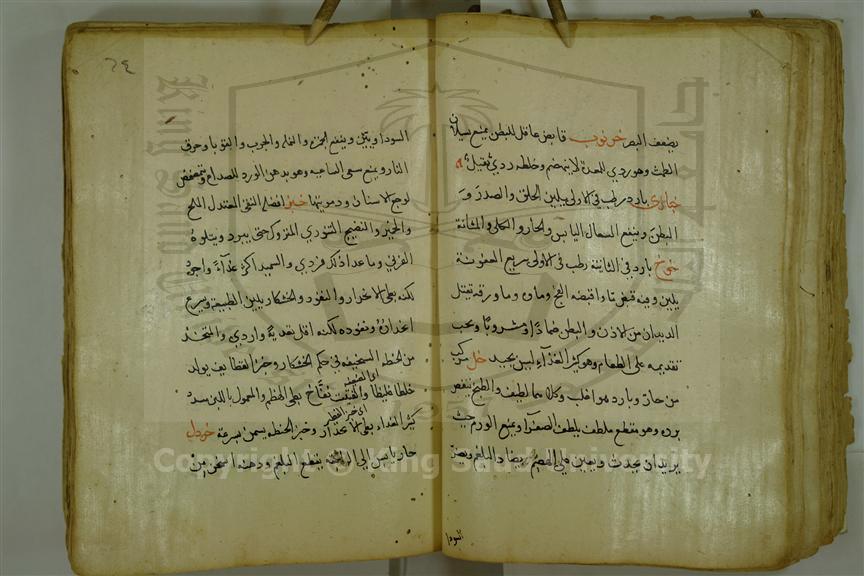 يضعف البصر خرنوب قابض عاقل للبطن يمنع سيلان
الطمث وهو ردي للمعدة لا ينهضم وخلطه ردي ثقيل
خبازي بارد رطب في الاولى يلين الحلق والصدر و
البطن وينفع السعال اليابس والحار والكلى والمثانة
خوخ بارد في الثانية رطب في الاولى سريع العفونة
يلين وفيه قبض ما واقبضه الفج وماؤه وما ورقه يقتل
الديدان من الاذن والبطن ضمادا ومشروبا ويجب
تقديمه على الطعام وهو كثير الغذاء ليس بجيد خل مركب
من حار وبارد هو اغلب وكلاهما لطيف والطبخ ينقص
برده وهو مقطع ملطف يلطف الصفرا ويمنع الورم حيث
يريد ان يحدث ويعين على الهضم ويضاد البلغم ويضر
السودا
٢٤
السودا وينفع الجمرة والنملة والجرب والقوبا وحرق
النار ويمنع سعى الساعيه وهو بدهن الورد للصداع ويتمضمض
لوجع الاسنان ودمويتها خبز افضله النقي المعتدل الملح
والخمير والنضيج التنوري المتروك حتى يبرد ويتلوه
الفرني وما عدا ذلك فردي والسميد اكثر غذاء واجود
لكنه بطى الانحدار والنفوذ والخشكار يلين الطبيعة ويسرع
انحداره ونفوذه لكنه اقل تغذية واردي والمتخذ
من الحنطه السخيفه في حكم الخشكار وخبز القطايف يولد
خلطا غليظا والفتيت نفاخ بطى الهضم والمعمول باللبن مسدد
كثير الغذاء بطى الانحدار وخبز الحنطه يسمن بسرعة خردل
حار يابس الى الرابعة يقطع البلغم ودهنه اسخن من